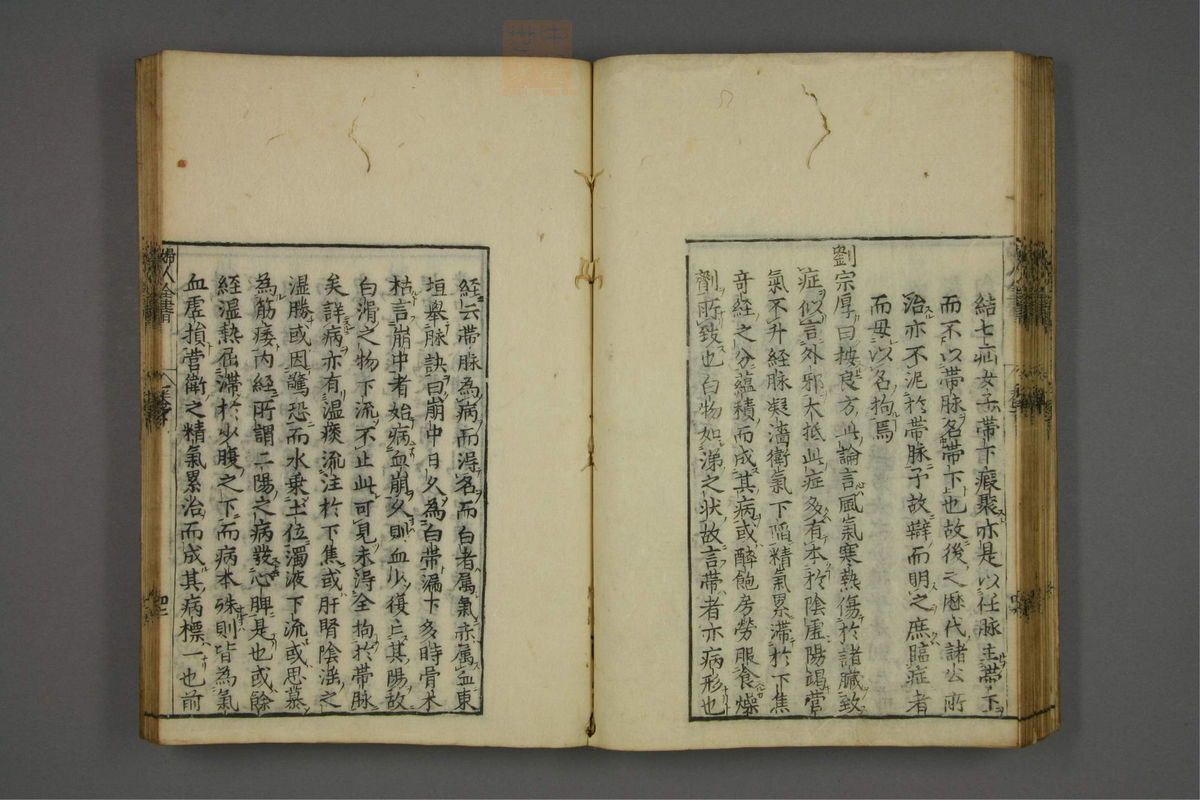 結七疝女子帶下瘕聚亦是以任脉主帶下
而不以帶脉名帶下也故後之歷代諸公所
治亦不泥於帶脉予故辯而明之庶臨症者
而毋以名拘焉
劉宗厚曰按良方此論言風氣寒熱傷於諸臟致
症似言外邪大抵此症多有本於陰虛陽竭營
氣不升經脉凝濇衛氣下陷精氣累滯於下焦
奇經之分蘊積而成其病或醉飽房勞服食燥
劑所致也白物如涕之狀故言帶者亦病形也
経云帶脉為病而得名而白者属氣赤属血東
垣舉脉訣曰崩中日久為白帶漏下多時骨木
枯言崩中者始病血崩久則血少復亡其陽故
白滑之物下流不止此可見未得全拘於帶脉
矣詳病亦有湿痰流注於下焦或肝腎陰淫之
湿勝或因驚恐而水乗土位濁液下流或思慕
為筋痿內経所謂二陽之病發心脾是也或餘
経湿熱屈滯於少腹之下而病本殊則皆為氣
血虛損營衛之精氣累治而成其病標一也前
婦人全書